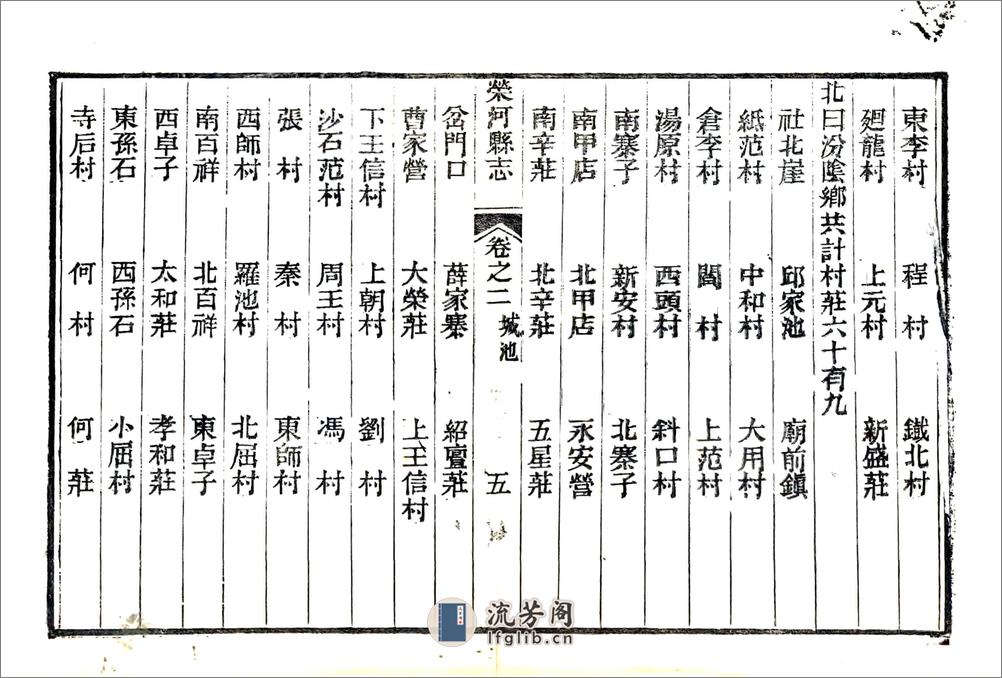 東李村 程村 鐵北村
廻龍村 上元村 新盛莊
北曰汾陰鄉共計村莊六十有九
社北崖 邱家池 廟前鎮
紙范村 中和村 大用村
倉李村 閻村 上范村
湯原村 西頭村 斜口村
南寨子 新安村 北寨子
南甲店 北甲店 永安營
南辛莊 北辛莊 五星莊
榮河縣志 卷之二 城池 五
岔門口 薛家寨
曹家營 大榮莊 上王信村
下王信村 上朝村 劉村
沙石范村 周王村 馮村
張村 秦村 東師村
西師村 羅池村 北屈村
南百祥 北百祥 東卓子
西卓子 太和莊 孝和莊
東孫石 西孫石 小屈村
寺后村 何村 何莊
流芳阁
lfglib.cn